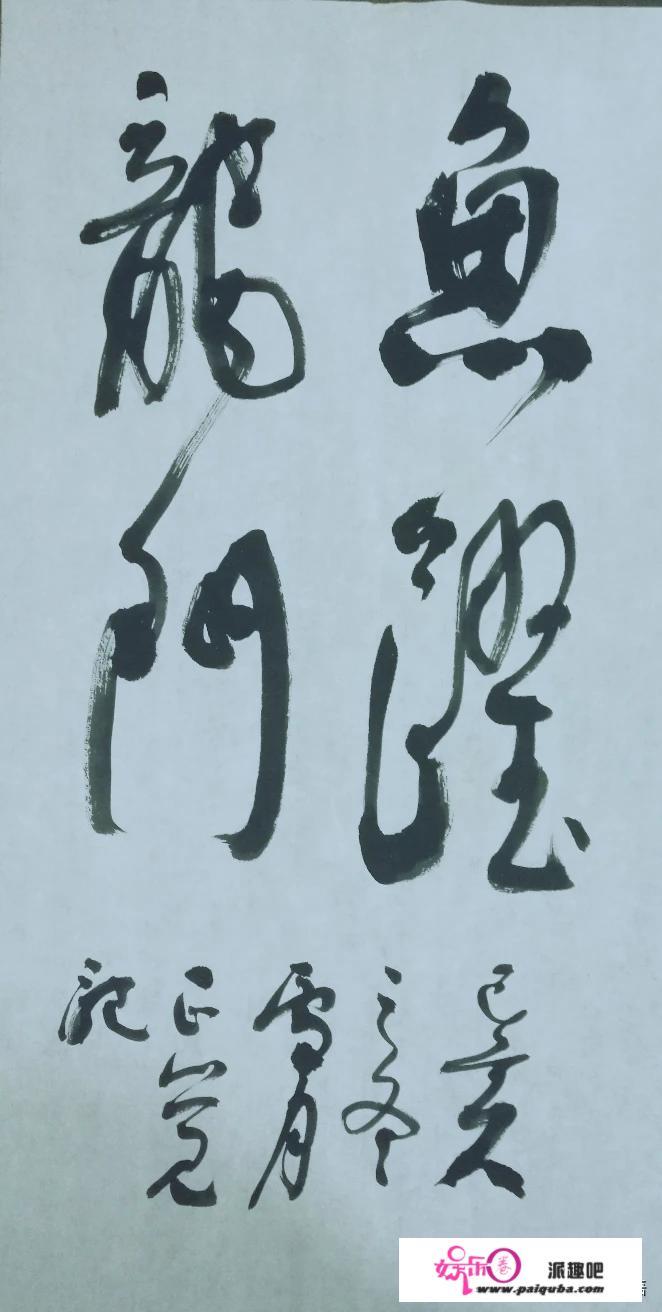 魚躍
龍門
己亥
之冬
雪月
正覚
記
娱乐圈 派趣吧
www.paiquba.com